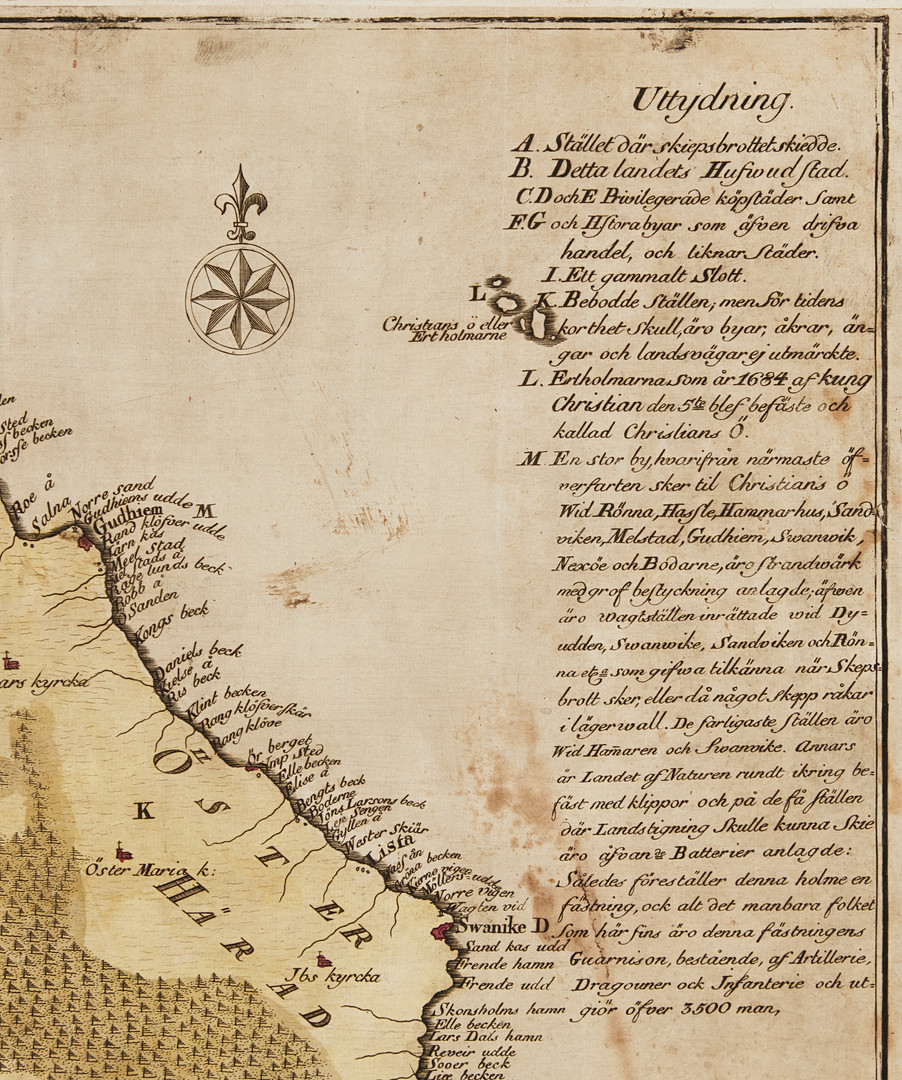 Uttydning.
A. Stället där skiepsbrottet skiedde.
B. Detta landets Hufwud stad.
C. D och E Privilegerade köpstäder samt
F. G och H stora byar som äfven drifva
handel, och liknar städer.
I. Ett gammalt Slott.
K. Bebodde ställen; men för tidens
korthet skull, äro byar, åkrar, än=
gar och landsvägar ej utmärckte.
L. Ertholmarna som år 1684 af kung
Christian den 5te blef befäste och
kallad Christians Ö.
M En stor by, hvarifrån närmaste öf=
verfarten sker til Christians ö
Wid Rönna, Hassle, Hammarhus, Sand
viken, Melstad, Gudhiem, Swanwik,
Nexöe och Bodarne, äro strandwärk
med grof bestyckning anlagde; äfwen
äro wagtställen inrättade wid Dy=
udden, Swanwike, Sandviken och Rön=
na etc som gifwa tilkänna när Skeps
brott sker, eller då något skepp råkar
i lägerwall. De farligaste ställen äro
Wid Ham̄aren och Swanvike. Annars
är Landet af Naturen rundt ikring be=
fäst med klippor och på de få ställen
där Landstigning Skulle kunna Skie
äro åfvan Batterier anlagde:
Således föreställer denna holme en
fästning, ock alt det manbara folket
Som här fins äro denna fästningens
Guarnison, bestående, af Artillerie,
Dragouner ock Infanterie och ut=
giör öfver 3500 man,
L
Christians ö eller
Ertholmarne
sted
becken
becken
Roe å
Salna
Norre sand
Gudhiems udde
Gudhiem M
Rand klöfver udde
kås
Meel Stad
Mel stads å
Rage lunds beck
Bobb å
Sanden
Kongs beck
Daniels beck
Kelse å
Ris beck
Klint becken
Rang klöfver skär
Rang klöve
Ör berget
sted
Elle becken
Elise å
Bengts beck
Boderne
Jöns Larsons beck
Gyllen å
Wester Skiär
Lisfa
becken
Möllens udde
Norre vigen
Wagten vid
Swanike D
Sand kas udd
Frende hamn
Frende udd
Skonsholms hamn
Elle becken
Lars Dals hamn
Reveir udde
Sooer beck
Lise becken
ars kyrcka
K
Öster Maria k:
Ibs kyrcka
ÖSTER
HÄRAD